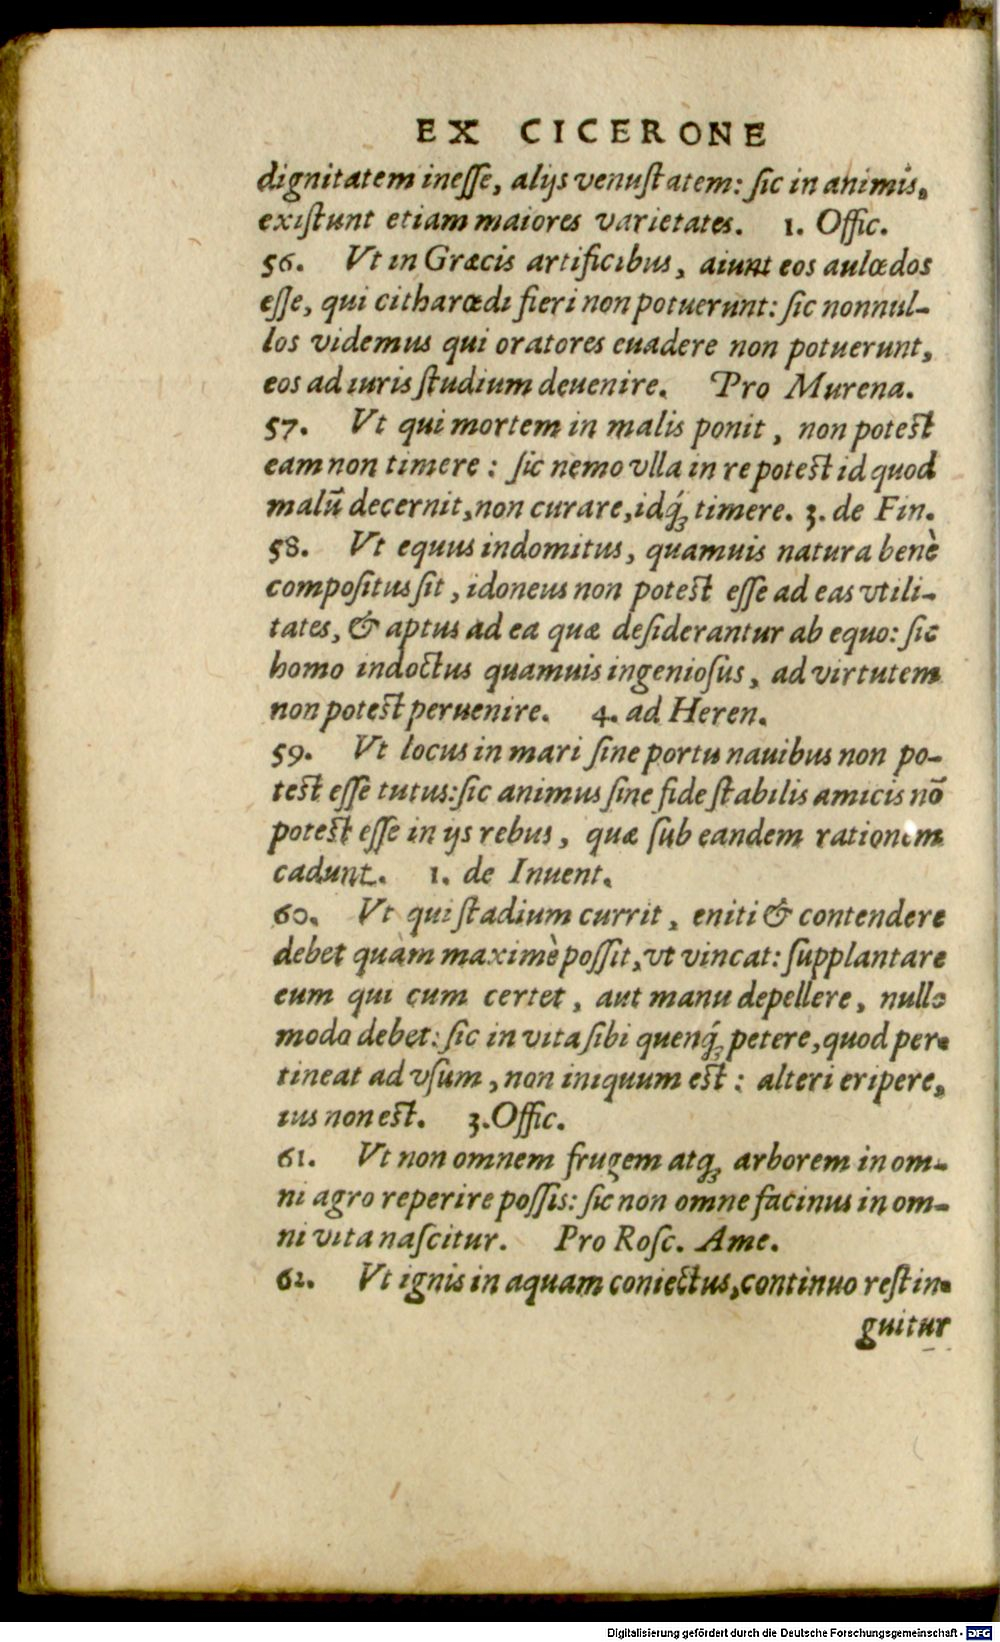 EX CICERONE
dignitatem inesse, alijs venustatem: sic in animis,
existunt etiam maiores varietates. 1. Offic.
56. Vt in Græcis artificibus, aiunt eos aulœdos
esse, qui citharœdi fieri non potuerunt: sic nonnul-
los videmus qui oratores euadere non potuerunt,
eos ad iuris studium deuenire. Pro Murena.
57. Vt qui mortem in malis ponit, non potest
eam non timere: sic nemo vlla in re potest id quod
malū decernit, non curare, idq́ʒ timere. 3. de Fin.
58. Vt equus indomitus, quamuis natura benè
compositus sit, idoneus non potest esse ad eas vtili-
tates, & aptus ad ea quæ desiderantur ab equo: sic
homo indoctus quamuis ingeniosus, ad virtutem
non potest peruenire. 4. ad Heren.
59. Vt locus in mari sine portu nauibus non po-
test esse tutus: sic animus sine fide stabilis amicis nō
potest esse in ijs rebus, quæ sub eandem rationem
cadunt. 1. de Inuent.
60. Vt qui stadium currit, eniti & contendere
debet quàm maximè possit, vt vincat: supplantare
eum qui cum certet, aut manu depellere, nullo
modo debet: sic in vita sibi quenq́ʒ petere, quod per-
tineat ad vsum, non iniquum est: alteri eripere,
ius non est. 3. Offic.
61. Vt non omnem frugem atqʒ arborem in om-
ni agro reperire possis: sic non omne facinus in om-
ni vita nascitur. Pro Rosc. Ame.
62. Vt ignis in aquam coniectus, continuo restin-
guitur
Digitalisierung gefördert durch die Deutsche Forschungsgemeinschaft - DFG